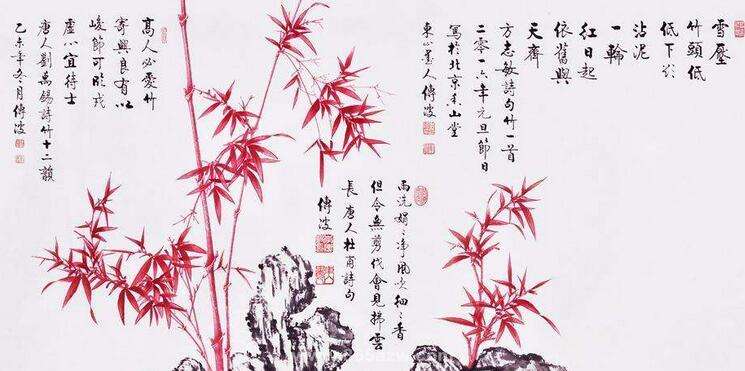 雪壓
竹頭低
低下欲
沾泥
一輪
紅日起
依舊與
天齊
方志敏詩句竹一首
二零一六年元旦節日
寫於北京山堂
東山墨人傳波
雨洗娟〻淨風吹細〻香
但令無剪伐會見拂雲
長唐人杜甫詩句
傳波
高人必愛竹
寄興良有以
峻節可臨戎
虛心宜待士
唐人劉禹錫詩竹十二韻
乙未年冬月傳波